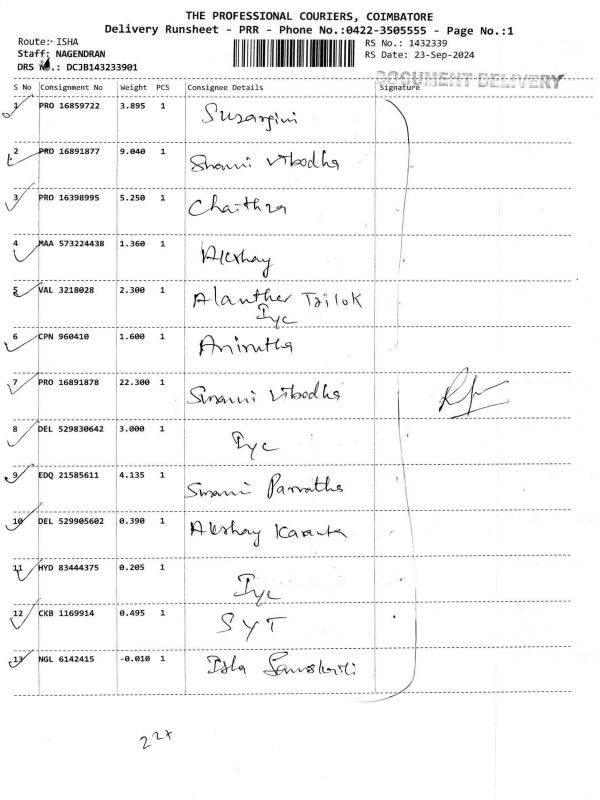 THE PROFESSIONAL COURIERS, COIMBATORE
Delivery Runsheet - PRR - Phone No.:0422-3505555 - Page No.:1
Route:- ISHA
RS No.: 1432339
Staff: NAGENDRAN
RS Date: 23-Sep-2024
DRS No.: DCJB143233901
DOCUMENT DELIVERY
S No Consignment No Weight PCS Consignee Details Signature
1 PRO 16859722 3.895 1
2 PRO 16891877 9.040 1 Swami Vibodha
3 PRO 16398995 5.250 1 Chaithra
4 MAA 573224438 1.360 1 Akshay
5 VAL 3218028 2.300 1 Alanther Trilok
Iyc
6 CPN 960410 1.600 1 Anirutha
7 PRO 16891878 22.300 1 Swami Vibodha
8 DEL 529830642 3.000 1 Iyc
9 EDQ 21585611 4.135 1 Swami Parvatha
10 DEL 529905602 0.390 1 Akshay Karanta
11 HYD 83444375 0.205 1 Iyc
12 CKB 1169914 0.495 1 SYT
13 NGL 6142415 -0.010 1 Isha Samskriti